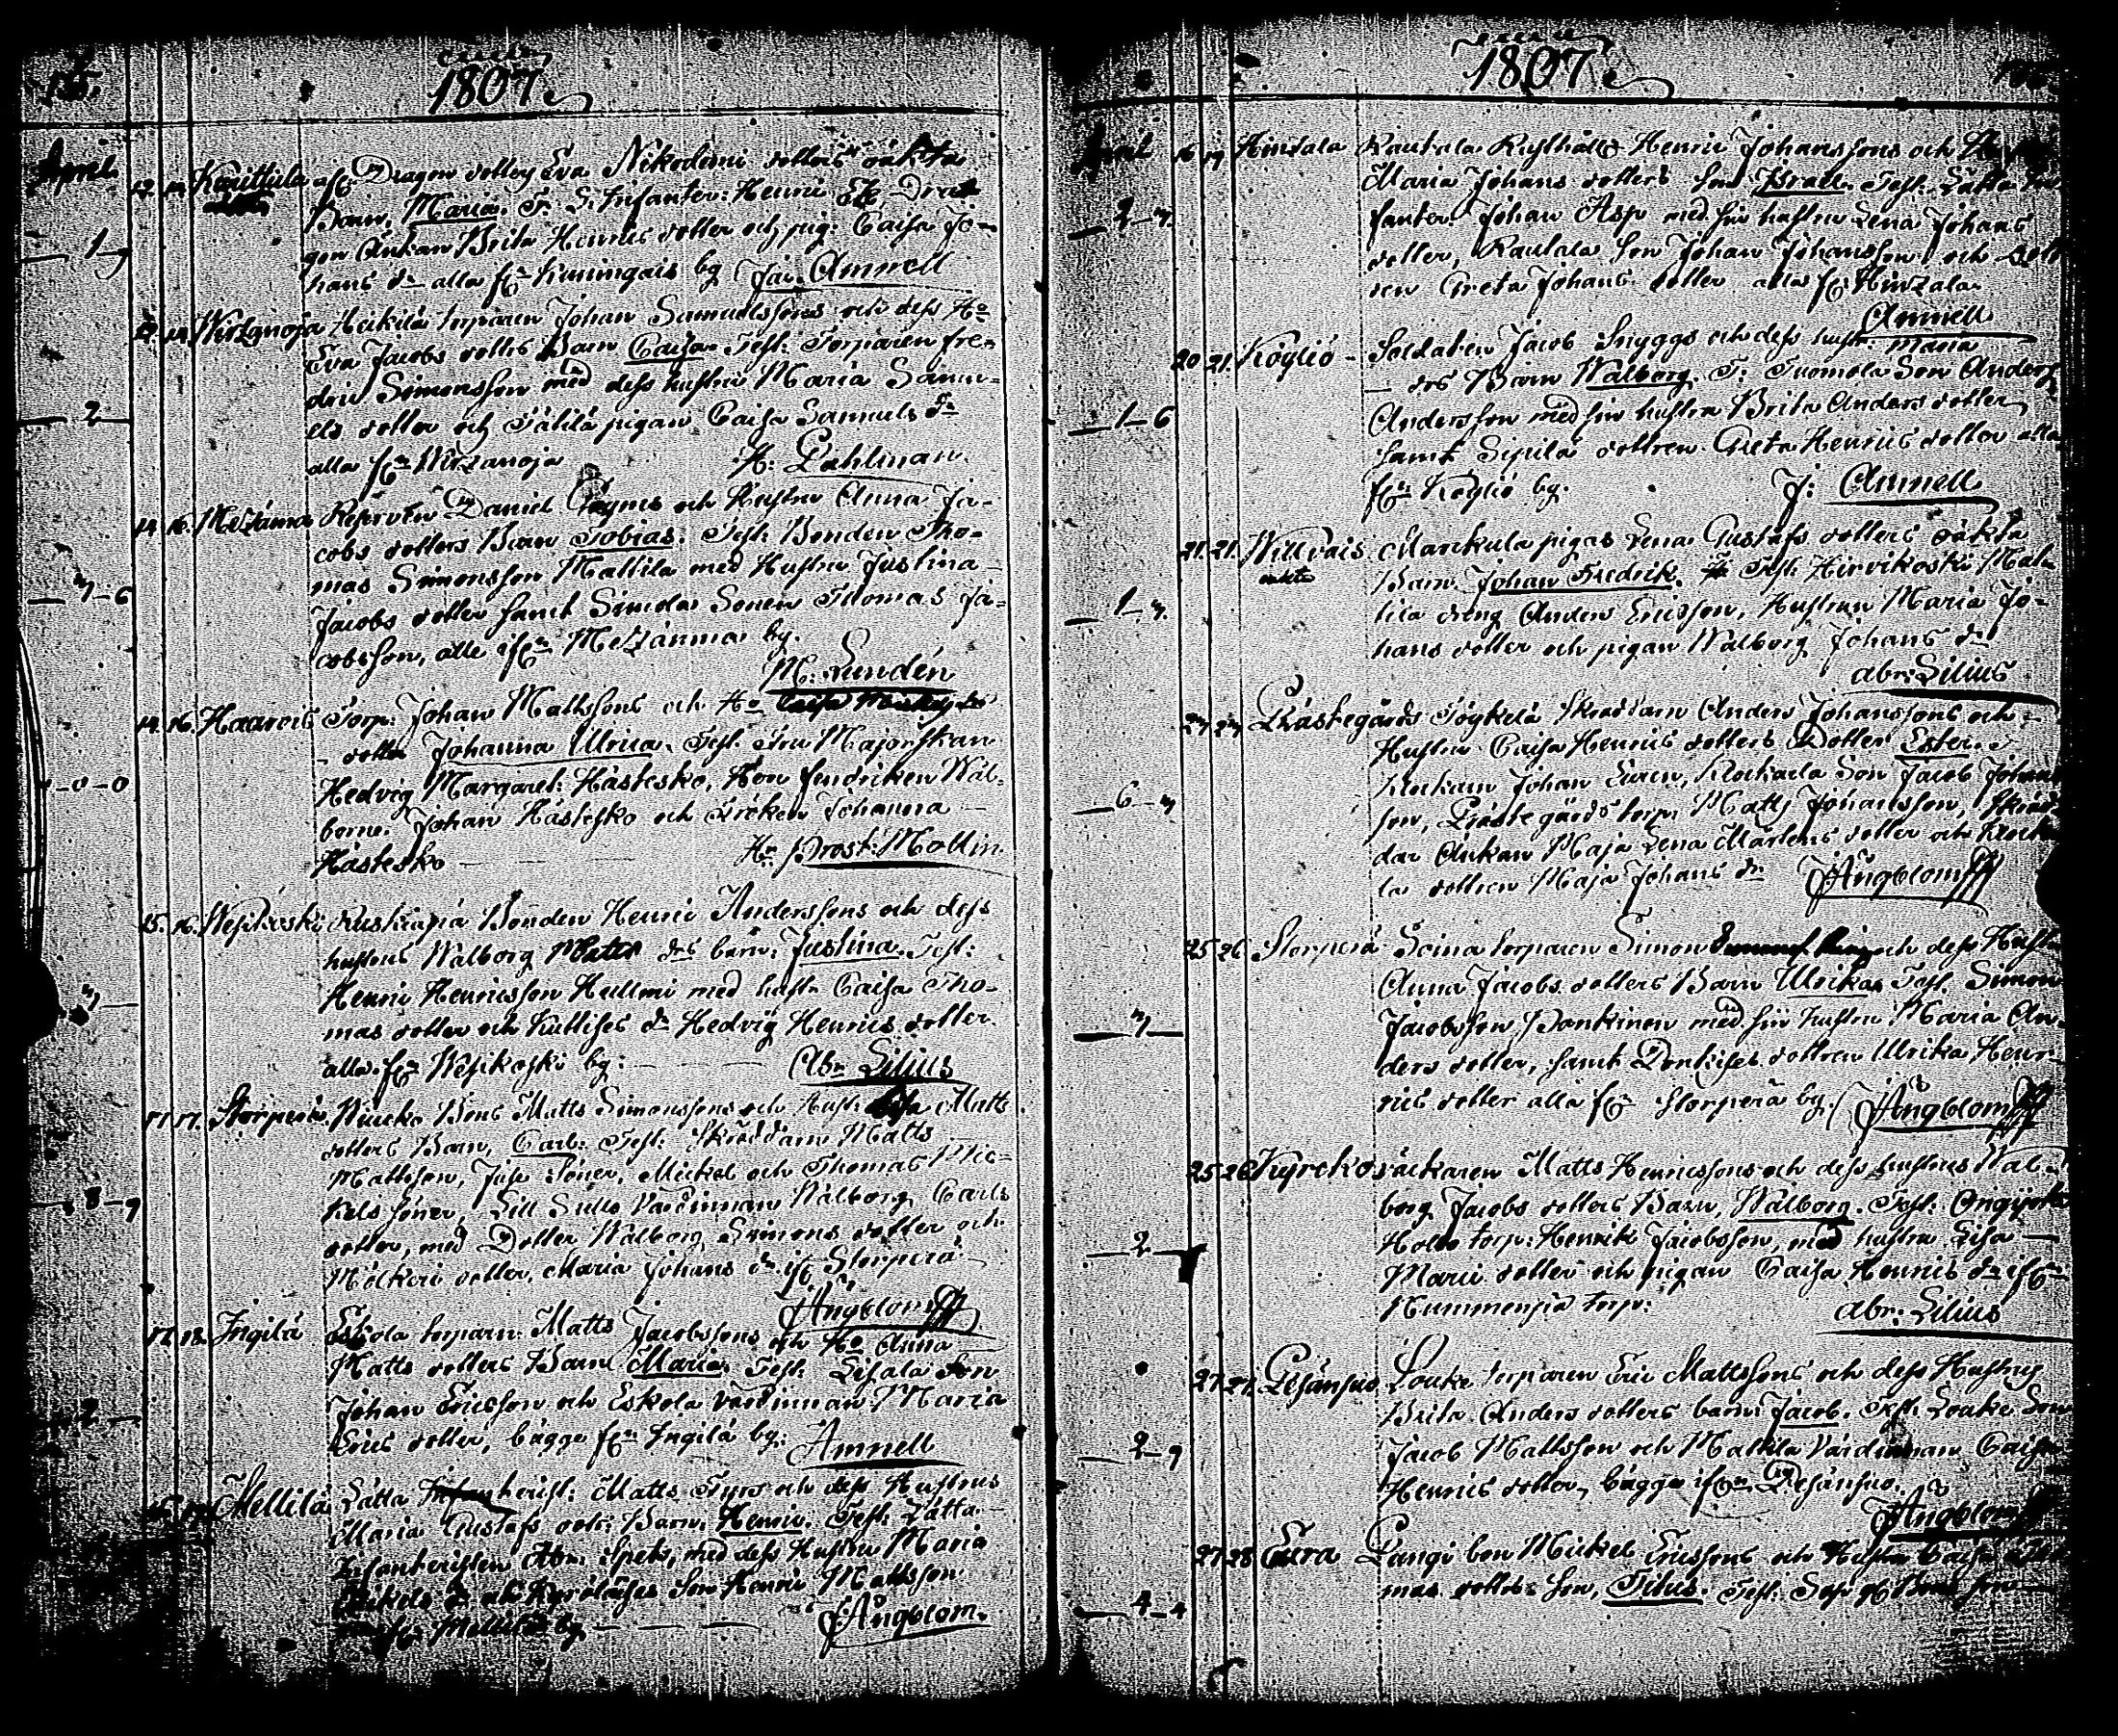 1807.
April
12. 12. Karittula af Dragon dotter Eva Nikodemi dotters oäkta
Barn, Maria. T. S. Infanter: Henric Ek, Dra-
gon Änkan Brita Henrics dotter och pig: Caisa Jo-
1-7
hans dr alla fr Kuningais by Jac. Amnell
12. 14. Wirzanoja Heikilä torparen Johan Samuelssons och dess Ho
Eva Jacobs dotters Barn Caisa. Test: Torparen Fre-
dric Simonsson med dess hustru Maria Samu-
2
els dotter och Täklä pigan Caisa Samuels dr
alla fr Wirzanoja H: Pahlman.
14. 16. Mezänma Reserven Daniel Eegrns och Hustru Anna Ja-
cobs dotters Barn Tobias. Test: Bonden Tho-
mas Simonsson Mattila med Hustru Justina
7-6
Jacobs dotter samt Simola Sonen Thomas Ja-
cobsson, alle ifrn Mezänma by.
M: Lundén
14. 16. Haarois Torp: Johan Mattssons och Ho
dotter Johanna Ulrica. Test: Fru Majorskan
Hedvig Margaret: Hästesko, Herr Fendriken Wäl-
0-0
borne Johan Hästesko och Fröken Johanna
Hästesko Hr Prost: Mollin
15. 16. Wesikoski Ruskiapä Bonden Henric Anderssons och dess
hustrus Walborg Matts drs barn: Justina. Test:
Henric Henricsson Hullmi med hust. Caisa Tho-
7
mas dotter och Kullises dr Hedvig Henrics dotter
alla fr Wesikoski by: Abr. Lilius
17. 17. Storperä. Niucko Bons Matts Simonssons och Hust: Lisa Matts
dotters Barn, Carl. Test: Skräddarn Matts
Mattsson, Juse Söner, Mickel och Thomas Mic-
8-9
kels söner, Lill Sulls Värdinnan Walborg Carls
dotter, med Dotter Walborg Simons dotter och
Mälkeri dotter, Maria Johans dr if Storperä
JÅngblom
17. 18. Ingilä Eskola torparn: Matts Jacobssons och Ho Anna
Matts dotters Barn Maria. Test: Lisala Son
Johan Ericsson och Eskola Värdinnan Maria
2
Erics dotter, bägge frn Ingilä by: Amnell
Mellilä Lätta Infanterist: Matts Fyrs och dess Hustrus
Maria Gustafs dotr: Barn. Henric. Test: Lätta
Infanteristen Abr. Spets, med dess Hustru Maria
Mickels dr och Kyröläises Son Henric Mattsson
fr Mellilä by JÅngblom.
1807.
April 16 19 Hinzala Rautala Rusthålls Henric Johanssons och
Maria Johans dotters Son Israel. Test: Lätta In-
2-7.
fanter: Johan Asp med sin hustru Lena Johans
dotter, Rautala Son Johan Johansson och dott-
ren Greta Johans dotter alla fr Hinzala
Amnell
20 21. Köyliö Soldaten Jacob Snyggs och dess hust: Maria
drs Barn Walborg. T: Tuomola Son Anders
1-6
Andersson med sin hustru Brita Anders dotter
samt Sipila dottren Greta Henrics dotter alla
frn Köyliö by. J: Amnell
21. 21. Willvais Marckula pigas Lena Gustafs dotters oäkta
oäkta
Barn Johan Fredrik. Test: Hirvikoski Mat-
1-7.
tila dreng Anders Ericsson, Hustrun Maria Jo-
hans dotter och pigan Walborg Johans dr
abr: Lilius
27 27 Prästegårds Töykelä Skräddarn Anders Johanssons och
Hustru Caisa Henrics dotters Dotter Ester.
Klockarn Johan Euren, Klockarla Son Jacob Johans
6-7
son, Prästegårds torp: Matts Johansson, Skräd-
dar Änkan Maja Lena Mårtens dotter och Klocka-
la dottren Maja Johans dr JÅngblom
25 26 Storperä Soina torparen Simon och dess Hustr
Anna Jacobs dotters Barn Ulrika. Test. Simon
7
Jacobsson Donkinen med sin hustru Maria An-
ders dotter, samt Donkises dottren Ulrika Hen-
rics dotter alla frn Storperä by. JÅngblom
25 26 Kyrckos äckaren Matts Henricssons och dess hustrus Wal-
borg Jacobs dotters Barn, Walborg. Test:
2
Holla torp: Henrik Jacobsson, med hustru Lisa
Mari dotter och pigan Caisa Henrics dr if
Nummenpä torp: abr: Lilius
27. 27. Pesänsuo Louke torparen Eric Mattssons och dess Hustrus
Brita Anders dotters barn: Jacob. Test. Louke Son
2-9
Jacob Mattsson och Mattila Värdinnan Caisa
Henrics dotter, bägge ifrn Pesänsuo.
JÅngblom
27 28 Eura Pangi bon Mickel Ericssons och Hustru Caisa Tho-
4-4
mas dotters Son, Titus. Test: